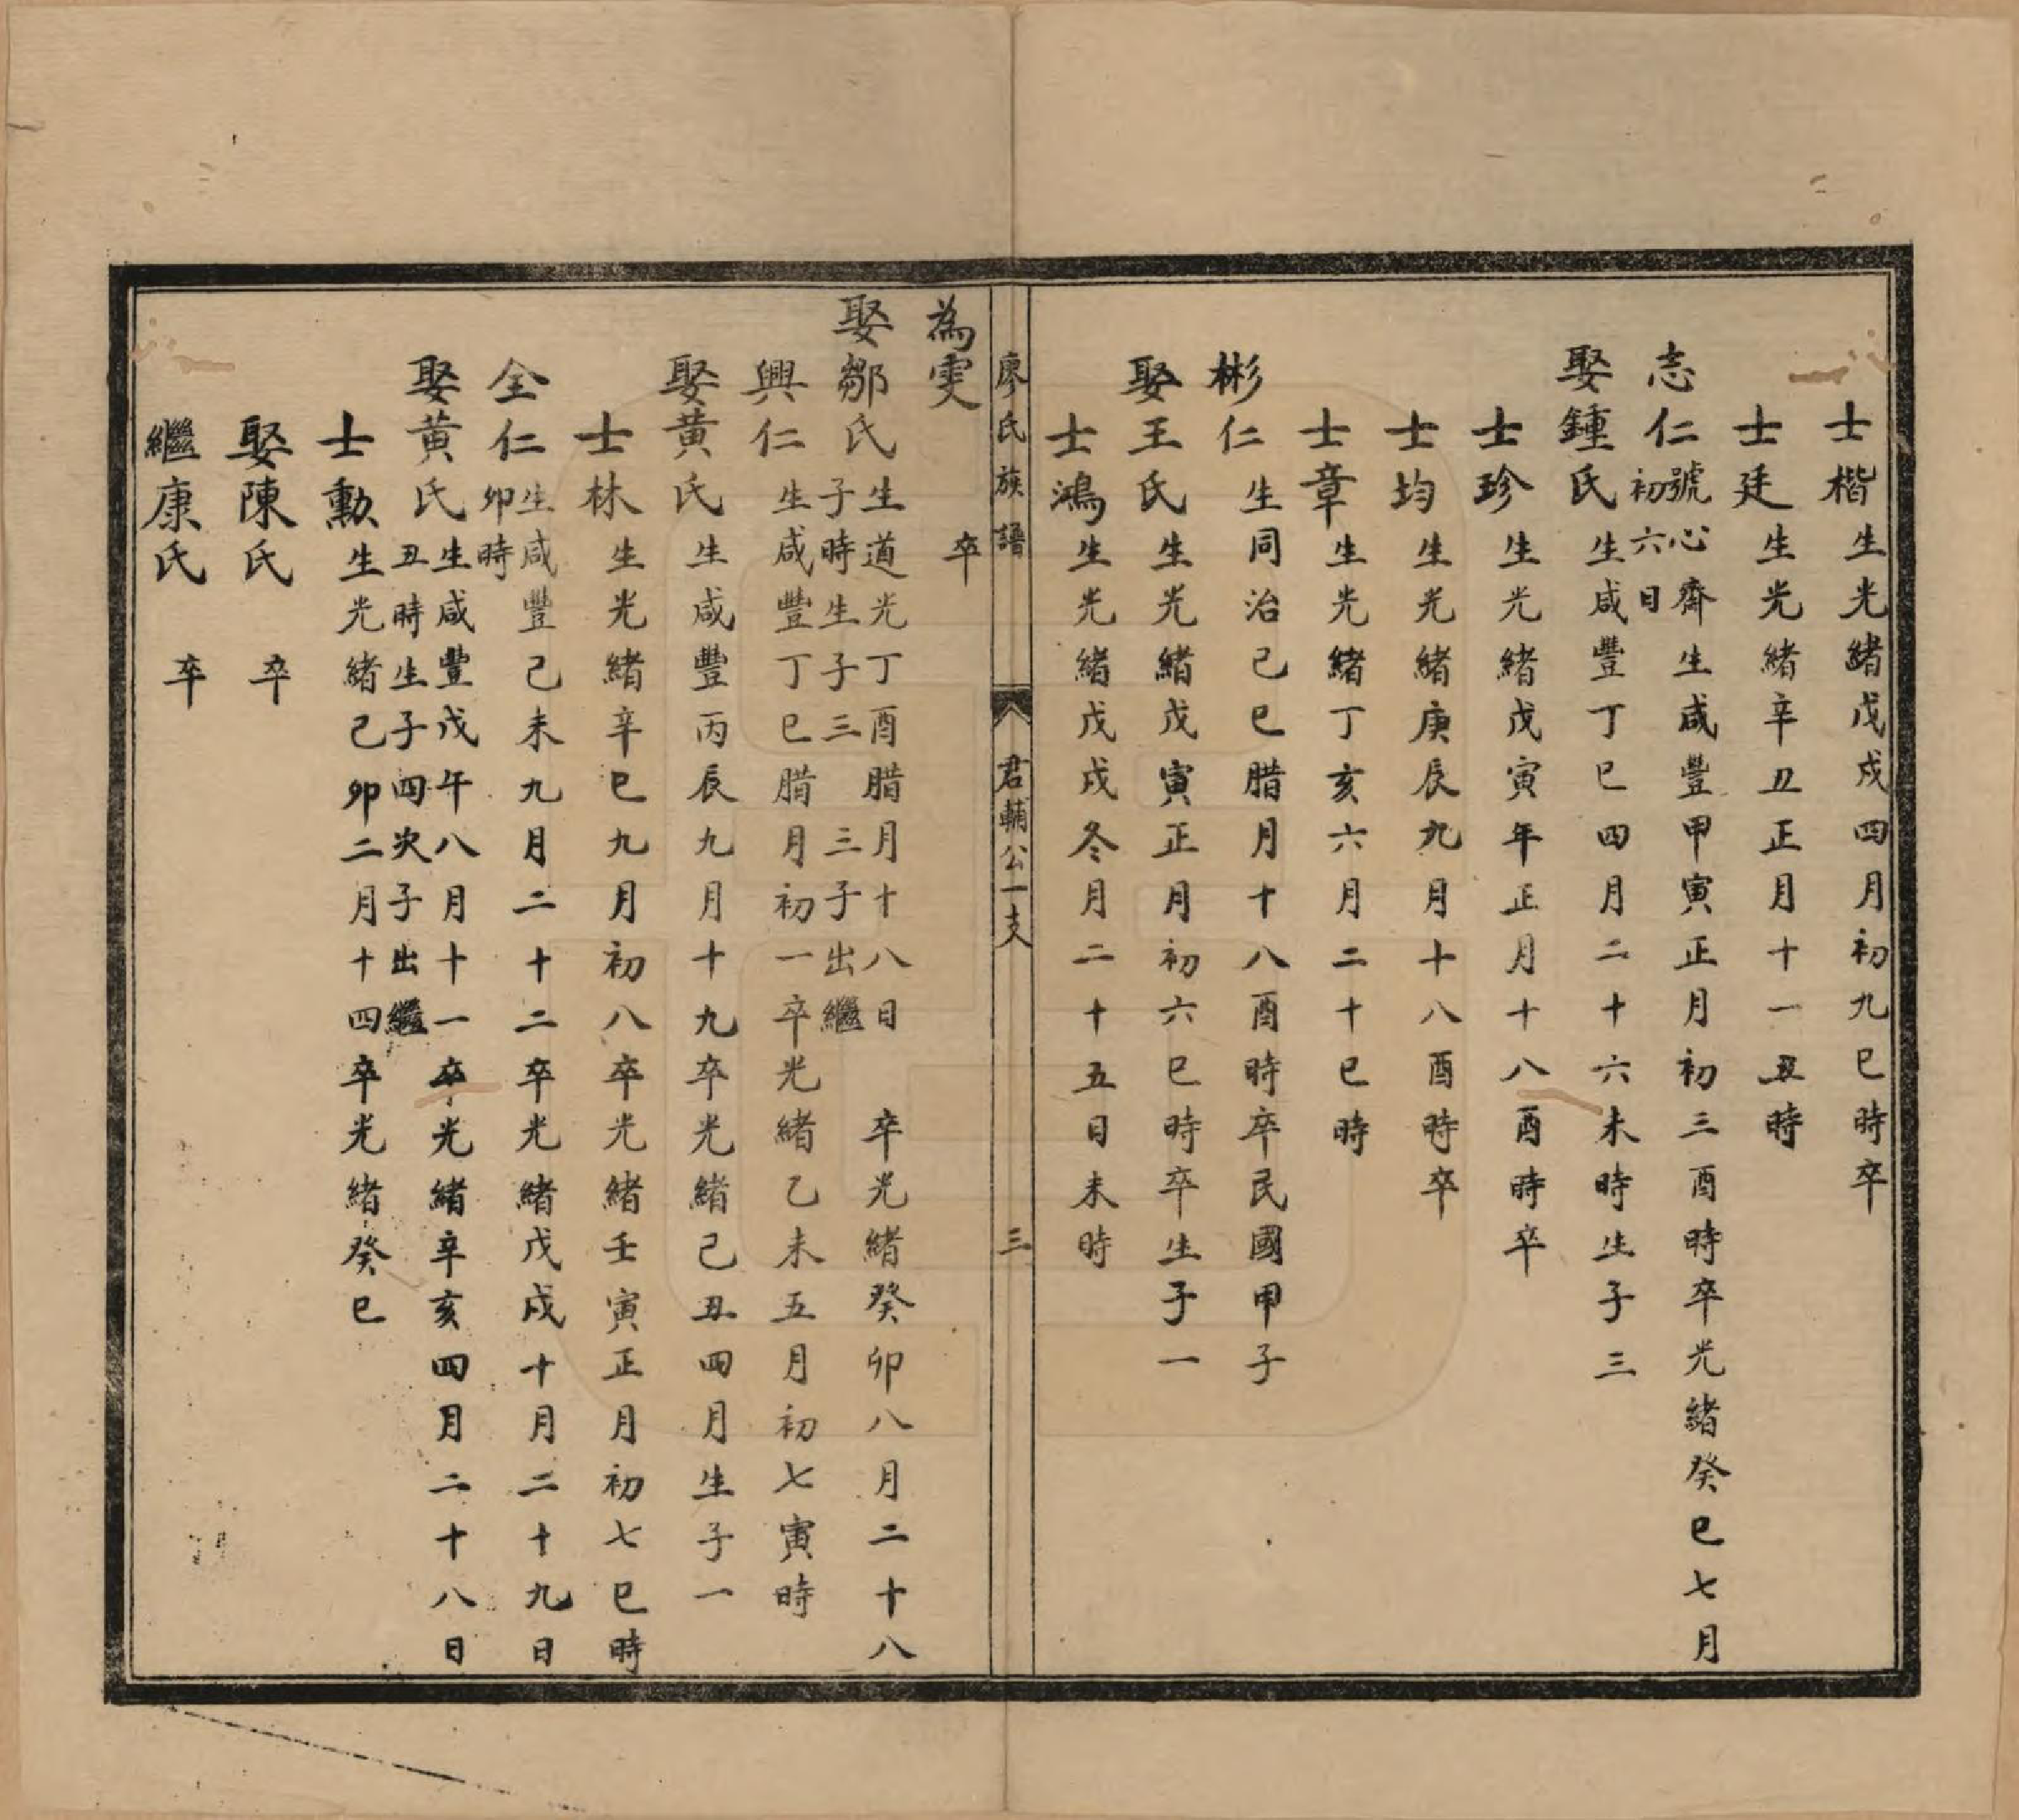 士楷生光緒戊戌四月初九巳時卒
士廷生光緒辛丑正月十一丑時
志仁號心齋生咸豐甲寅正月初三酉時卒光緒癸巳七月
初六日
娶鍾氏生咸豐丁巳四月二十六未時生子三
士珍生光緒戊寅年正月十八酉時卒
士均生光緒庚辰九月十八酉時卒
士章生光緒丁亥六月二十巳時
彬仁生同治己巳腊月十八酉時卒民國甲子
娶王氏生光緒戊寅正月初六巳時卒生子一
士鴻生光緒戊戌冬月二十五日未時
廖氏族譜 君輔公一支 三
為雯 卒
娶鄒氏生道光丁酉腊月十八日 卒光緒癸卯八月二十八
子時生子三 三子出繼
興仁生咸豐丁巳腊月初一卒光緒乙未五月初七寅時
娶黃氏生咸豐丙辰九月十九卒光緒己丑四月生子一
士林生光緒辛巳九月初八卒光緒壬寅正月初七巳時
全仁生咸豐己未九月二十二卒光緒戊戌十月二十九日
卯時
娶黃氏生咸豐戊午八月十一卒光緒辛亥四月二十八日
丑時生子四次子出繼
士勳生光緒己卯二月十四卒光緒癸巳
娶陳氏 卒
繼康氏 卒